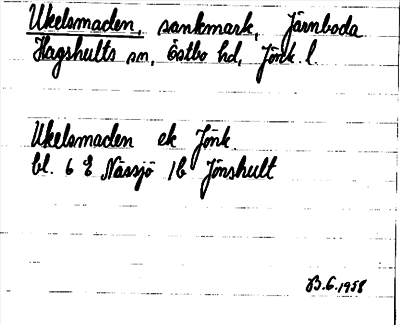 Ukelsmaden, sankmark, Järnboda
Hagshults sn, Östbo hd, Jönk. l.
Ukelsmaden ek Jönk
bl. 6 E Nässjö 1b Jönshult
B.G. 1958